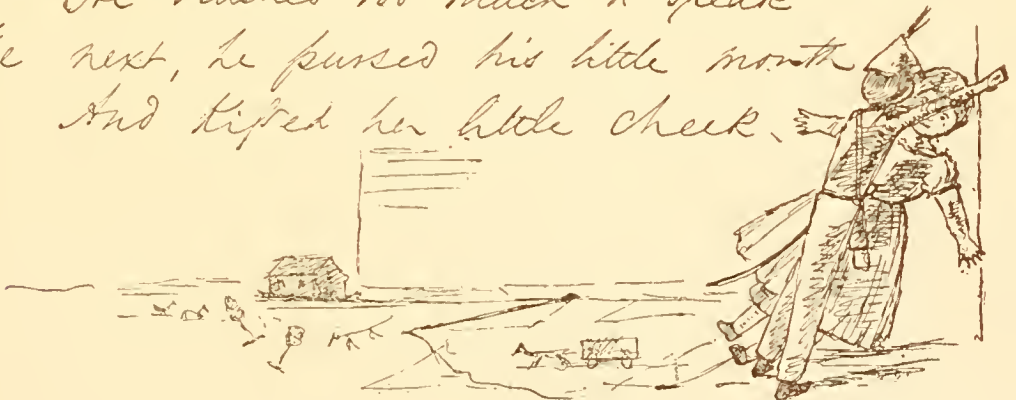 too much to speak
next, he pursed his little mouth
And Kissed her little cheek.